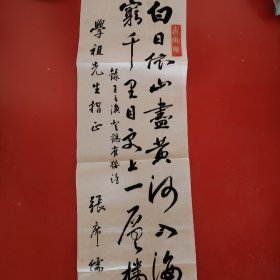 白日依山盡黃河入海
窮千里目更上一層樓
錄王之渙登鸛雀樓詩
學祖先生指正
張席儒